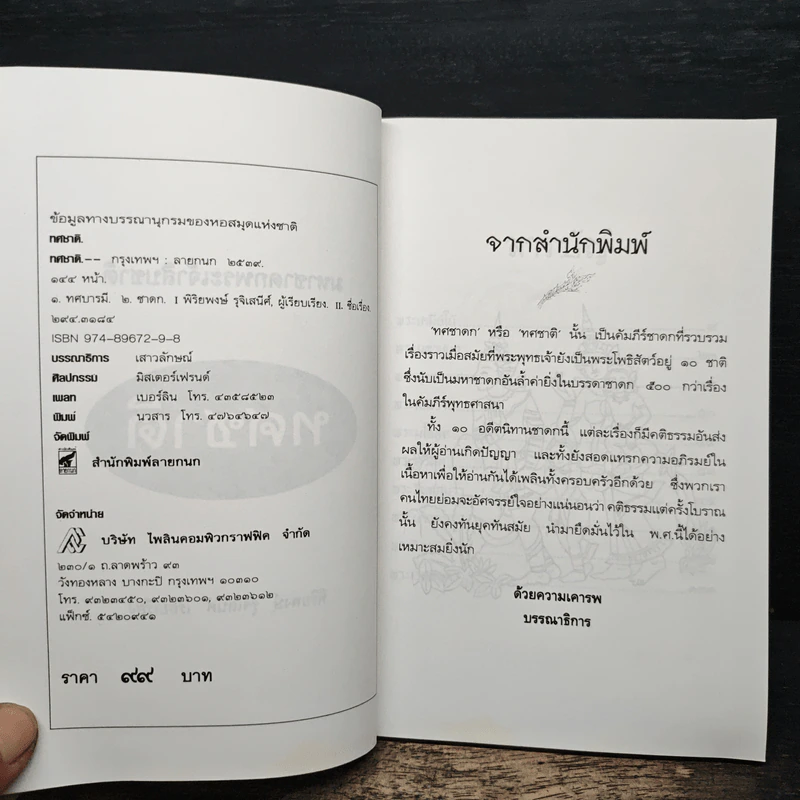 ข้อมูลทางบรรณานุกรมของหอสมุดแห่งชาติ
ทศชาติ.
ทศชาติ.-- กรุงเทพฯ : ลายกนก ๒๕๓๙.
๑๔๔ หน้า.
๑. ทศบารมี. ๒. ชาดก. I พิริยพงษ์ รุจิเสนีศ์, ผู้เรียบเรียง. II. ชื่อเรื่อง.
๒๙๔.๓๑๘๔
ISBN 974-89672-9-8
บรรณาธิการ เสาวลักษณ์
ศิลปกรรม มิสเตอร์เฟรนด์
เพลท เบอร์ลิน โทร. ๔๓๕๘๕๒๓
พิมพ์ นวสาร โทร. ๔๗๖๔๖๔๗
จัดพิมพ์
สำนักพิมพ์ลายกนก
จัดจำหน่าย
บริษัท ไพลินคอมพิวกราฟฟิค จำกัด
๒๓๐/๑ ถ.ลาดพร้าว ๙๓
วังทองหลาง บางกะปิ กรุงเทพฯ ๑๐๓๑๐
โทร. ๙๓๒๓๔๕๐, ๙๓๒๓๖๐๑, ๙๓๒๓๖๑๒
แฟ็กซ์. ๕๔๒๐๙๔๑
ราคา ๙๙ บาท
จากสำนักพิมพ์
'ทศชาดก' หรือ 'ทศชาติ' นั้น เป็นคัมภีร์ชาดกที่รวบรวม
เรื่องราวเมื่อสมัยที่พระพุทธเจ้ายังเป็นพระโพธิสัตว์อยู่ ๑๐ ชาติ
ซึ่งนับเป็นมหาชาดกอันล้ำค่ายิ่งในบรรดาชาดก ๕๐๐ กว่าเรื่อง
ในคัมภีร์พุทธศาสนา
ทั้ง ๑๐ อดีตนิทานชาดกนี้ แต่ละเรื่องก็มีคติธรรมอันส่ง
ผลให้ผู้อ่านเกิดปัญญา และทั้งยังสอดแทรกความอภิรมย์ใน
เนื้อหาเพื่อให้อ่านกันได้เพลินทั้งครอบครัวอีกด้วย ซึ่งพวกเรา
คนไทยย่อมจะอัศจรรย์ใจอย่างแน่นอนว่า คติธรรมแต่ครั้งโบราณ
นั้น ยังคงทันยุคทันสมัย นำมายึดมั่นไว้ใน พ.ศ.นี้ได้อย่าง
เหมาะสมยิ่งนัก
ด้วยความเคารพ
บรรณาธิการ